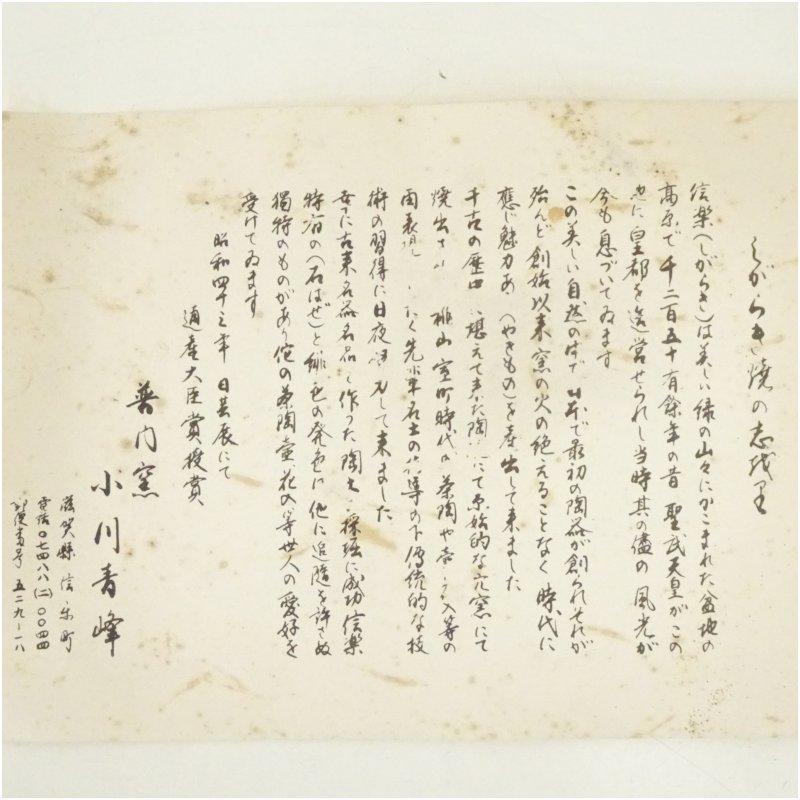 しがらき焼の志越里
信楽(しがらき)は美しい緑の山々にかこまれた盆地の
高原で千二百五十有餘年の昔 聖武天皇がこの
地に皇都を造営せられし当時其の儘の風光が
今も息づいてゐます
この美しい自然の中で 日本で最初の陶器が創られそれが
殆んど創始以来窯の火の絶えることなく時代に
應じ魅力あ (やきもの)を産出して来ました
千古の歴史 堪えて来た陶 にて原始的な穴窯にて
焼出さ 桃山室町時代の茶陶や壷 入等の
再表現 たく先輩名士の 導の下傳統的な技
術の習得に日夜 して来ました
幸に古来名器名品を作つた陶土 採掘に成功信楽
特有の(石はぜ)と緋色の発色に他に追随を許さぬ
獨特のものがあり他の茶陶壷、花入等世人の愛好を
受けてゐます
昭和四十三年 日芸展にて
通産大臣賞授賞
普門窯
小川青峰
滋賀縣信楽町
電話〇七四八八(二)〇〇四四
郵便番号 五二九-一八